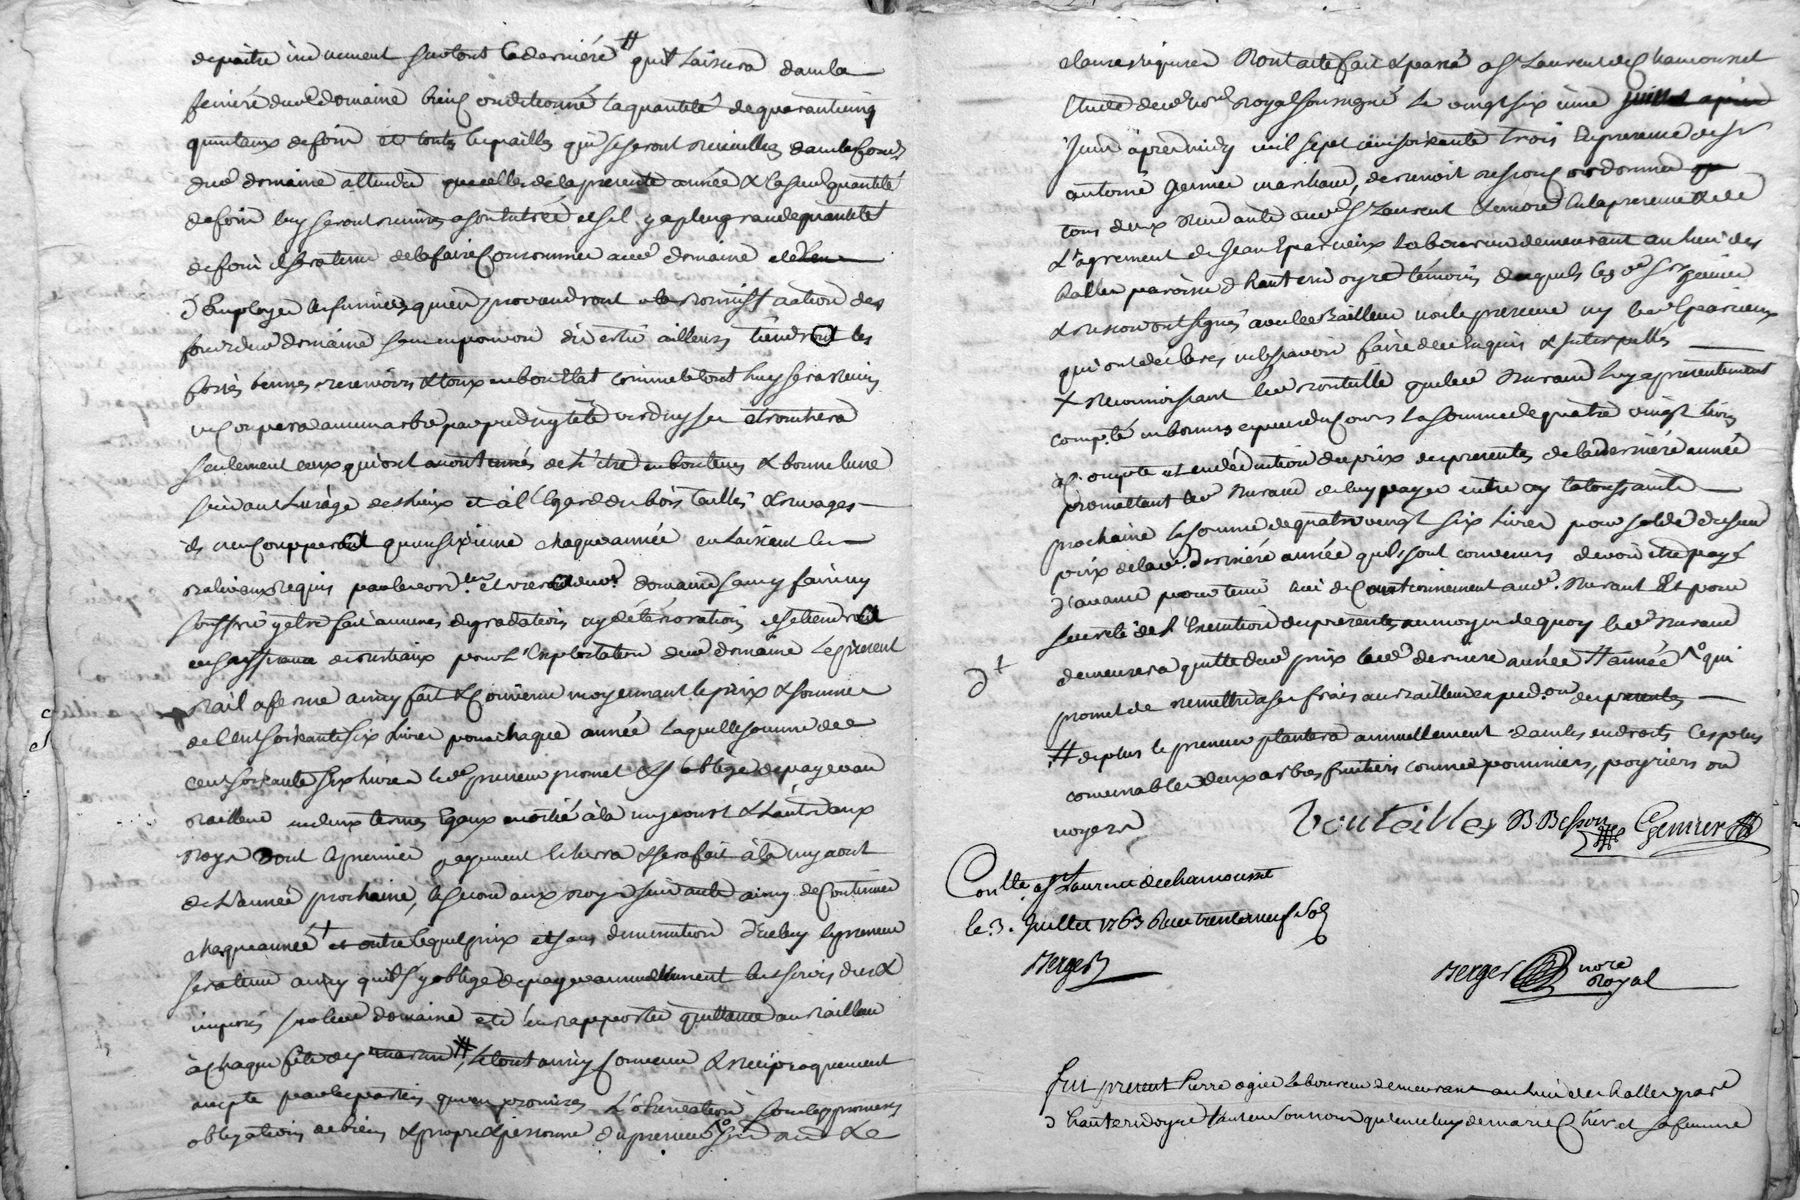 depaitre induement surtout la derniére # quil Laissera dans la
feniére dud domaine bien conditionné la quantité de quarante cinq
quintaux de foin et toutes les pailles qui se seront recueillies dans les fonds
dud domaine attendu que celles de la presente année & la susd quantité
de foin luy seront remises a son entrée, et s'il y a plus grande quantité
de foin il sera tenu de le faire consommer aud domaine et de
d'Employer les fumiers qui en proviendront a la bonnification des
fonds dud domaine sans en pouvoir divertir ailleurs tiendra les
fossés reservoirs & toux en bon Etat comme le tout luy sera remis
ne coupera aucun arbre par pied ny tête verd ny sec ebranchera
seulement ceux qui ont accoutumés de L'être en bon tems & bonne lune
suivant L'usage des Lieux et à l'Egard du bois taillis & rivages
il n'en couppera qu'un sixieme chaque année en laissant les
baliveaux requis par les ord.ces dud domaine sans y faire ny
souffrir y etre fait aucunes degradations ny déteriorations et se tiendra
de bestiaux pour L'Exploitation dud domaine Le present
Bail a ferme ainsy fait & Convenu moyennant le prix & somme
de Cent soixante six Livres pour chaque année Laquelle somme de
Cent soixante six livres led Preneur promet & s'oblige de payer au
Bailleur en deux termes Egaux moitié à la my aoust & L'autre aux
Roys dont le premier payement echerra & sera fait à la my aout
de L'année prochaine, le second aux Roys suivante ainsy de Continuer
chaque année + et outre lequel prix et sans diminution d'Iceluy le preneur
sera tenu ainsy qu'il s'y oblige de payer annuellement les servis dus &
imposés sur led domaine et d'en rapporter quittance au Bailleur
à chaque fête de st martin #, Le tout ainsy convenu & reciproquement
accepté par les parties qui en promises L'observation sous les promesses
obligations de biens & propre & personne du preneur
clauses requises Dont acte fait & passé a St Laurent de Chamousset
Etude dud no.re Royal soussigné Le vingt six ieme juillet apres
Juin après midy mil sept cent soixante trois En presence de sr
antoine Genier marchand, de benoit besson cordonnier
tous deux Residants aud St Laurent & encore En la presence & de
L'agrement de Jean Eparvieux Laboureur demeurant au lieu des
halles paroisse d'hauterivoyre témoins desquels les sd srs genier
& besson ont signés avec led Bailleur non le preneur ny led Eparvieux
qui ont declarés ne le sçavoir faire de ce Enquis & interpellés
+ Reconnoissant led Bouteille que led Durand luy a presentement
compté en bonnes especes du Cours la somme de quatre vingt livres
à Compte et en déduction du prix des presentes de la derniére année
promettant led Durand de luy payer entre cy la toussaints
prochaine la somme de quatre vingt six Livres pour solde du susd
prix de lad. derniére année qu'ils sont convenus devoir être payé
d'avance pour tenir lieu de Cautionnement aud. Durant Et pour
sureté de L'Execution des presentes au moyen de quoy led Durand
demeurera quitte dud prix de lad derniere année # année No qui
promet de remettre a ses frais au Bailleur exped.on des presentes
# de plus le preneur plantera annuellement dans les endroits les plus
convenables deux arbres fruitiers comme pommiers, poyriers ou
noyers
Bouteilles B Besson Genier
Conllé a St Laurent de chamousset
le 3. Juillet 1763 Reçu trente neuf sols
Berger
Berger nore
Royal
fut present Pierre ogier Laboureur demeurant au lieu des halles parse
d'hauterivoyre tant en son nom qu'en celuy de marie Cher et sa femme